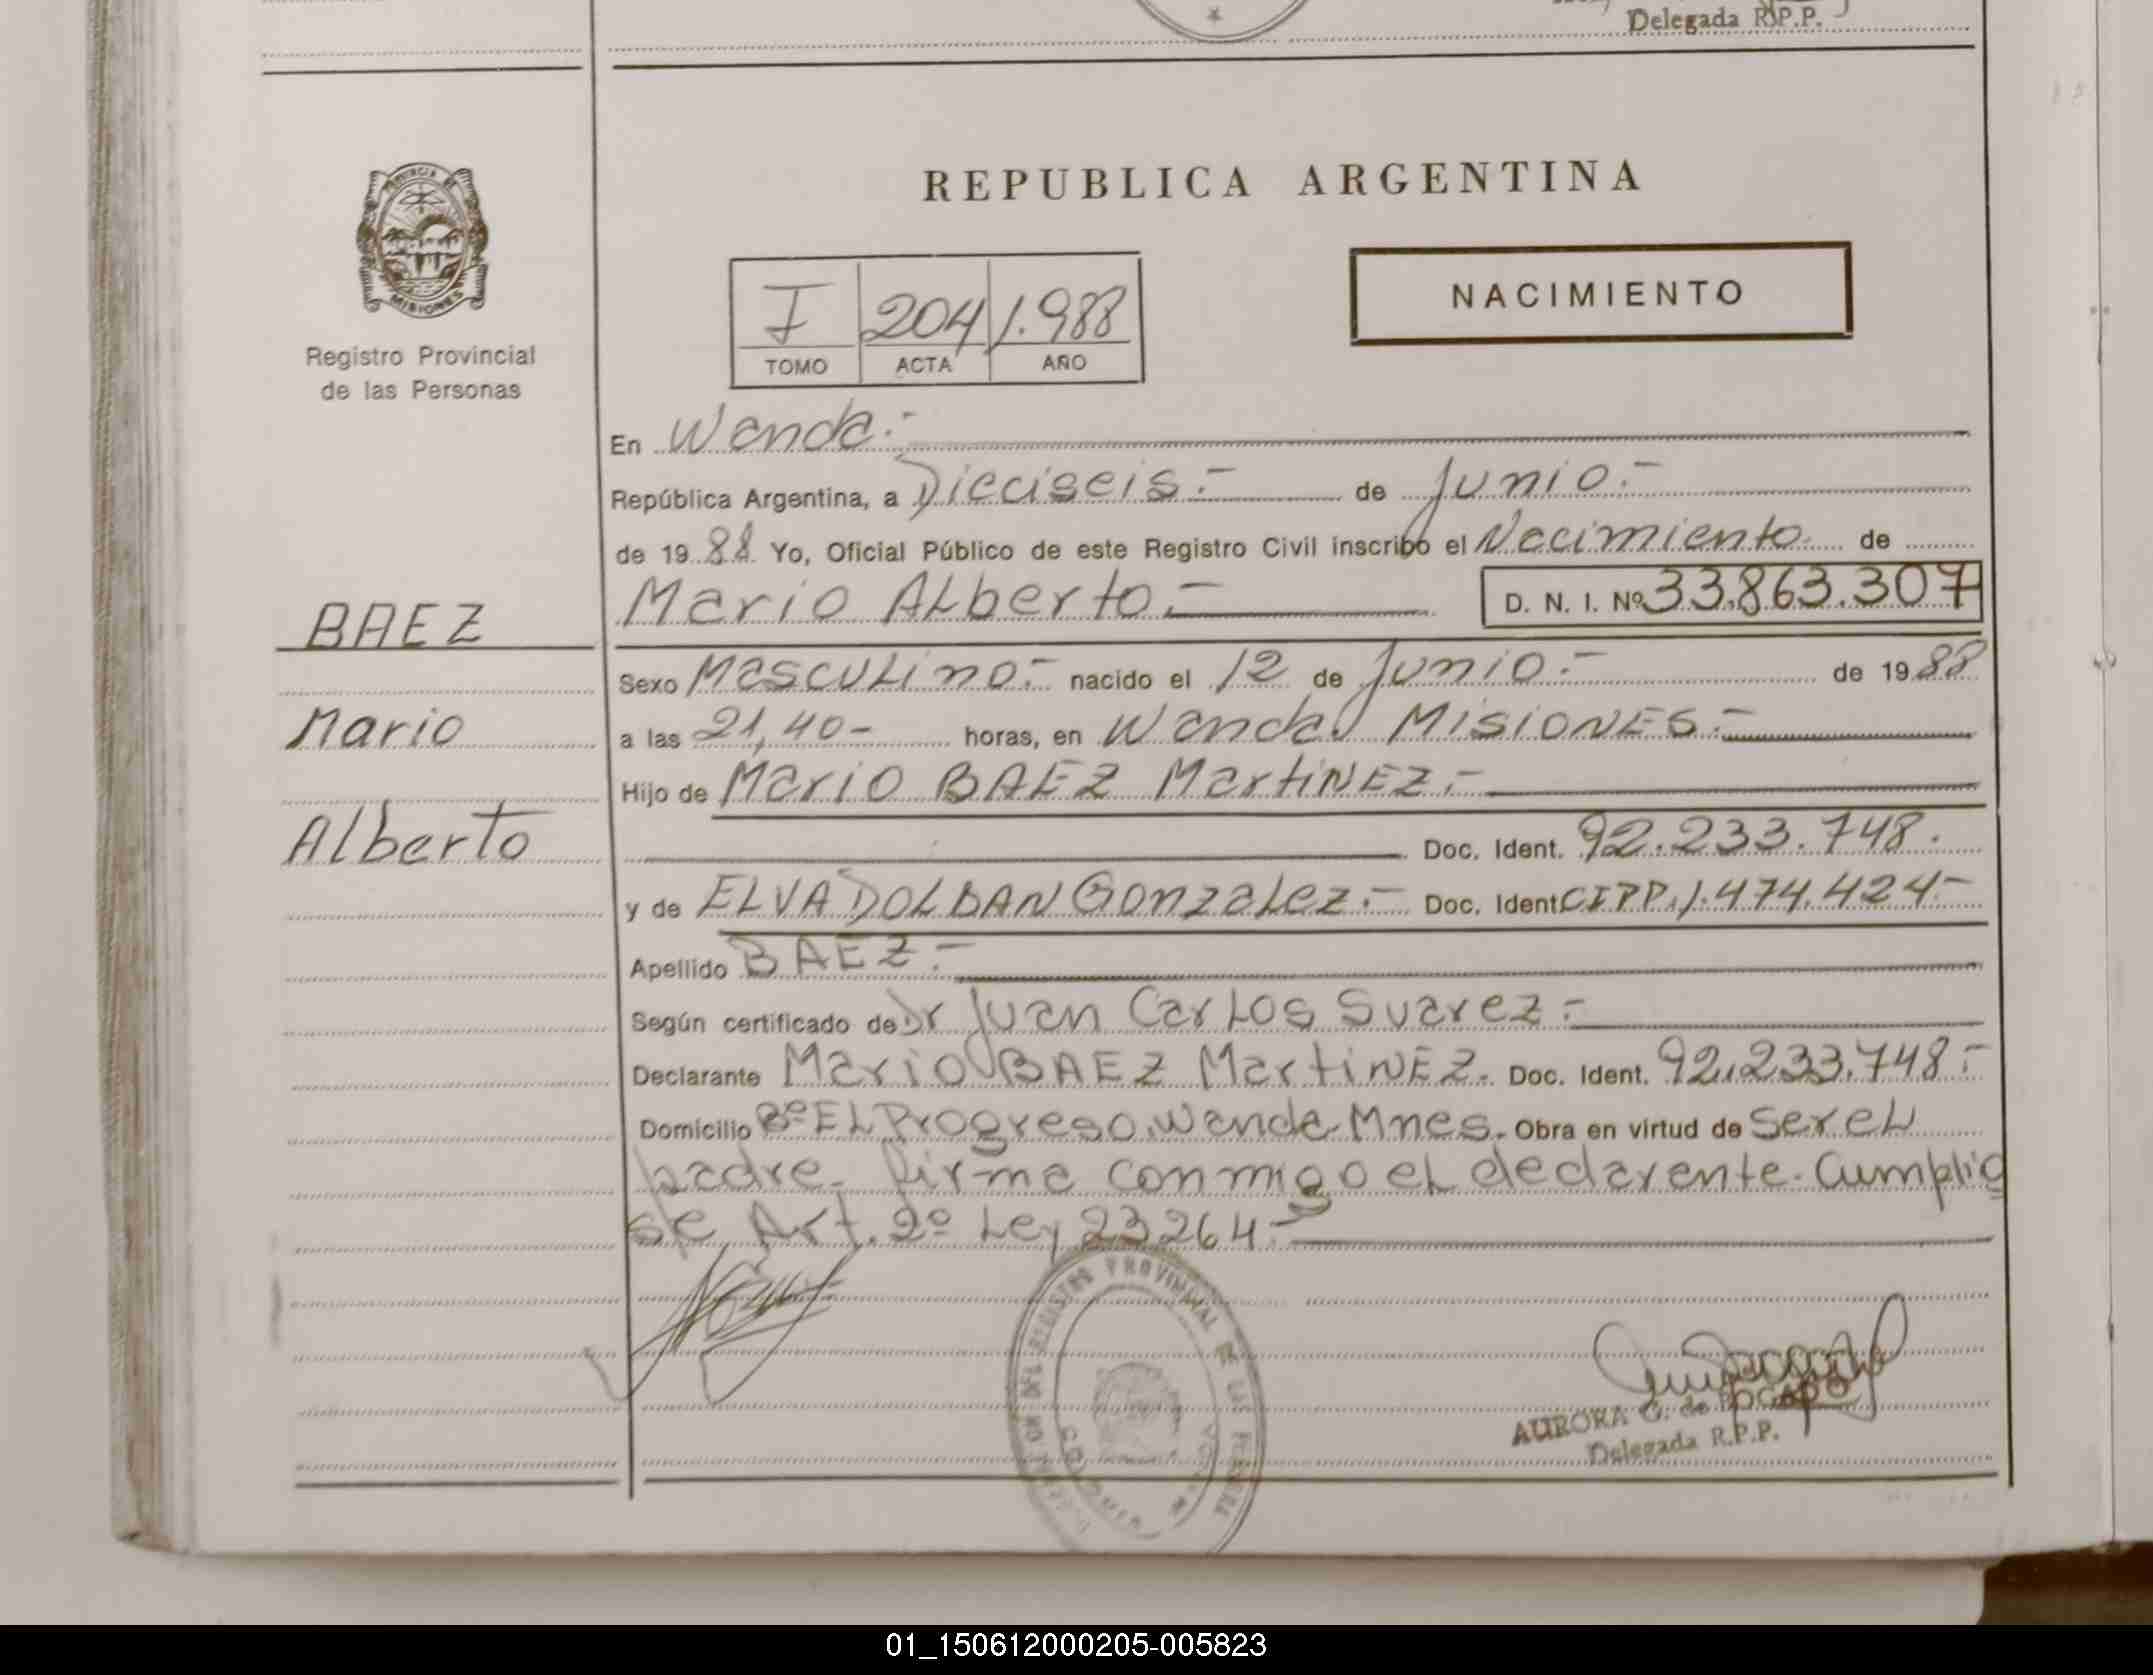 Delegada R.P.P.
PROVINCIA DE
MISIONES
Registro Provincial
de las Personas
REPUBLICA ARGENTINA
NACIMIENTO
I 204 1.988
TOMO ACTA AÑO
En Wanda.-
República Argentina, a Dieciseis.- de Junio.-
de 1988 Yo, Oficial Público de este Registro Civil inscribo el Nacimiento de
Mario ALberto.- D. N. I. Nº 33.863.307
BAEZ
Mario
Alberto
Sexo MascuLino.- nacido el 12 de Junio.- de 1988
a las 21,40- horas, en Wanda MISIONES.-
Hijo de Mario BAEZ MartiNEZ.-
Doc. Ident. 92.233.748.
y de ELVA DOLDAN GonzaLez.- Doc. Ident CIPP.1.474.424-
Apellido BAEZ.-
Según certificado de Dr Juan CarLos Suarez.-
Declarante Mario BAEZ MartiNEZ. Doc. Ident. 92.233.748.-
Domicilio Bº EL Progreso.Wanda-Mnes. Obra en virtud de ser eL
padre. firma conmigo eL declarante. Cumplio
se Art. 2º Ley 23264.-
REGISTRO PROVINCIAL DE LAS PERSONAS
AURORA G. de BOGADO
Delegada R.P.P.
01_150612000205-005823